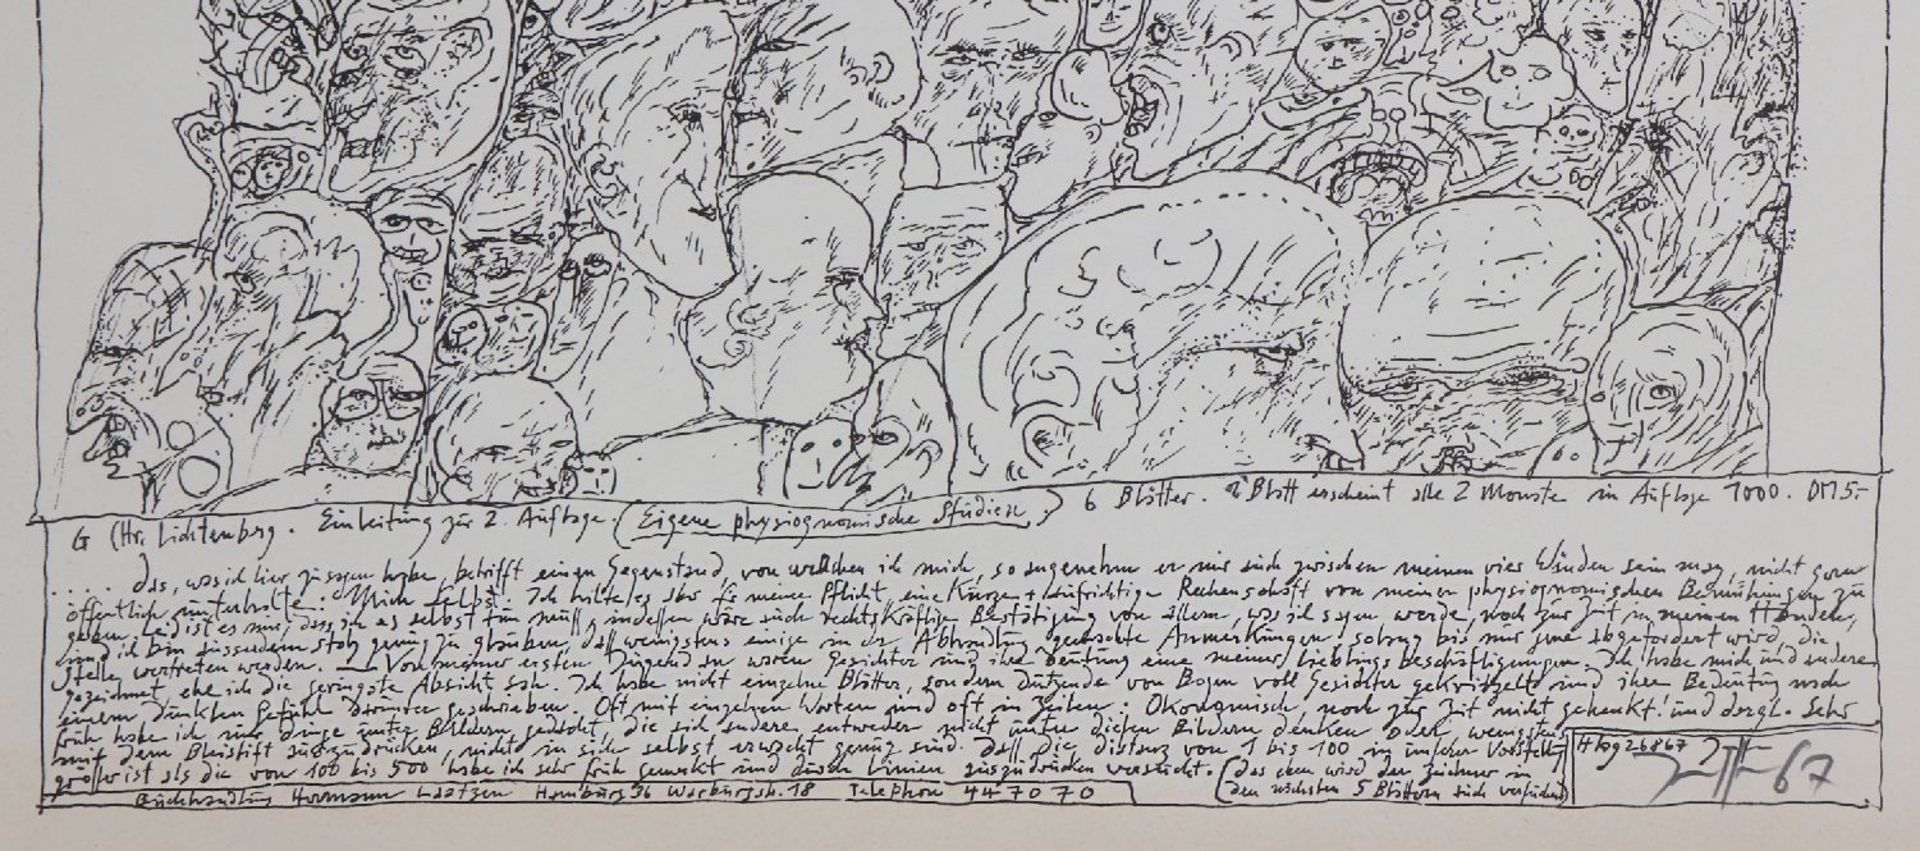 G Chr. Lichtenberg. Einleitung zur 2. Auflage. (Eigene physiognomische Studien.) 6 Blätter. 1 Blatt erscheint alle 2 Monate in Auflage 1000. DM 5.-
.... das, was ich hier zu sagen habe, betrifft einen Gegenstand, von welchem ich mich, so angenehm er mir auch zwischen meinen vier Wänden sein mag, nicht gern
öffentlich unterhalte: Mich selbst. Ich halte es aber für meine Pflicht, eine kurze + aufrichtige Rechenschaft von meinen physiognomischen Bemühungen zu
geben. Leid ist es mir, dass ich es selbst tun muss, indessen wäre auch rechtskräftige Bestätigung von allem, was ich sagen werde, noch zur Zeit in meinen Händen,
und ich bin ausserdem stolz genug zu glauben, dass wenigstens einige in der Abhandlung gemachte Anmerkungen, solang bis mir jene abgefordert wird, die
Stelle vertreten werden. — Von meiner ersten Jugend an waren Gesichter und ihre Deutung eine meiner Lieblingsbeschäftigungen. Ich habe mich und andere
gezeichnet, ehe ich die geringste Absicht sah. Ich habe nicht einzelne Blätter, sondern Dutzende von Bogen voll Gesichter gekritzelt und ihre Bedeutung nach
einem dunklen Gefühl darunter geschrieben. Oft mit einzelnen Worten und oft in Zeilen: Ökonomisch, noch zur Zeit nicht gehenkt! und dergl. Sehr
früh habe ich mir Dinge unter Bildern gedacht, die sich andere entweder nicht unter diesen Bildern denken oder wenigstens
mit dem Bleistift auszudrücken, nicht in sich selbst erwacht genug sind. Dass die Distanz von 1 bis 100 in unserer Vorstellg
grösser ist als die von 100 bis 500 habe ich sehr früh gemerkt und durch Linien auszudrücken versucht. (Das eben wird der Zeichner in
den nächsten 5 Blättern auch versuchen)
Hbg 26 8 67
67
Buchhandlung Hermann Laatzen Hamburg 36 Warburgstr. 18 Telephon 44 70 70